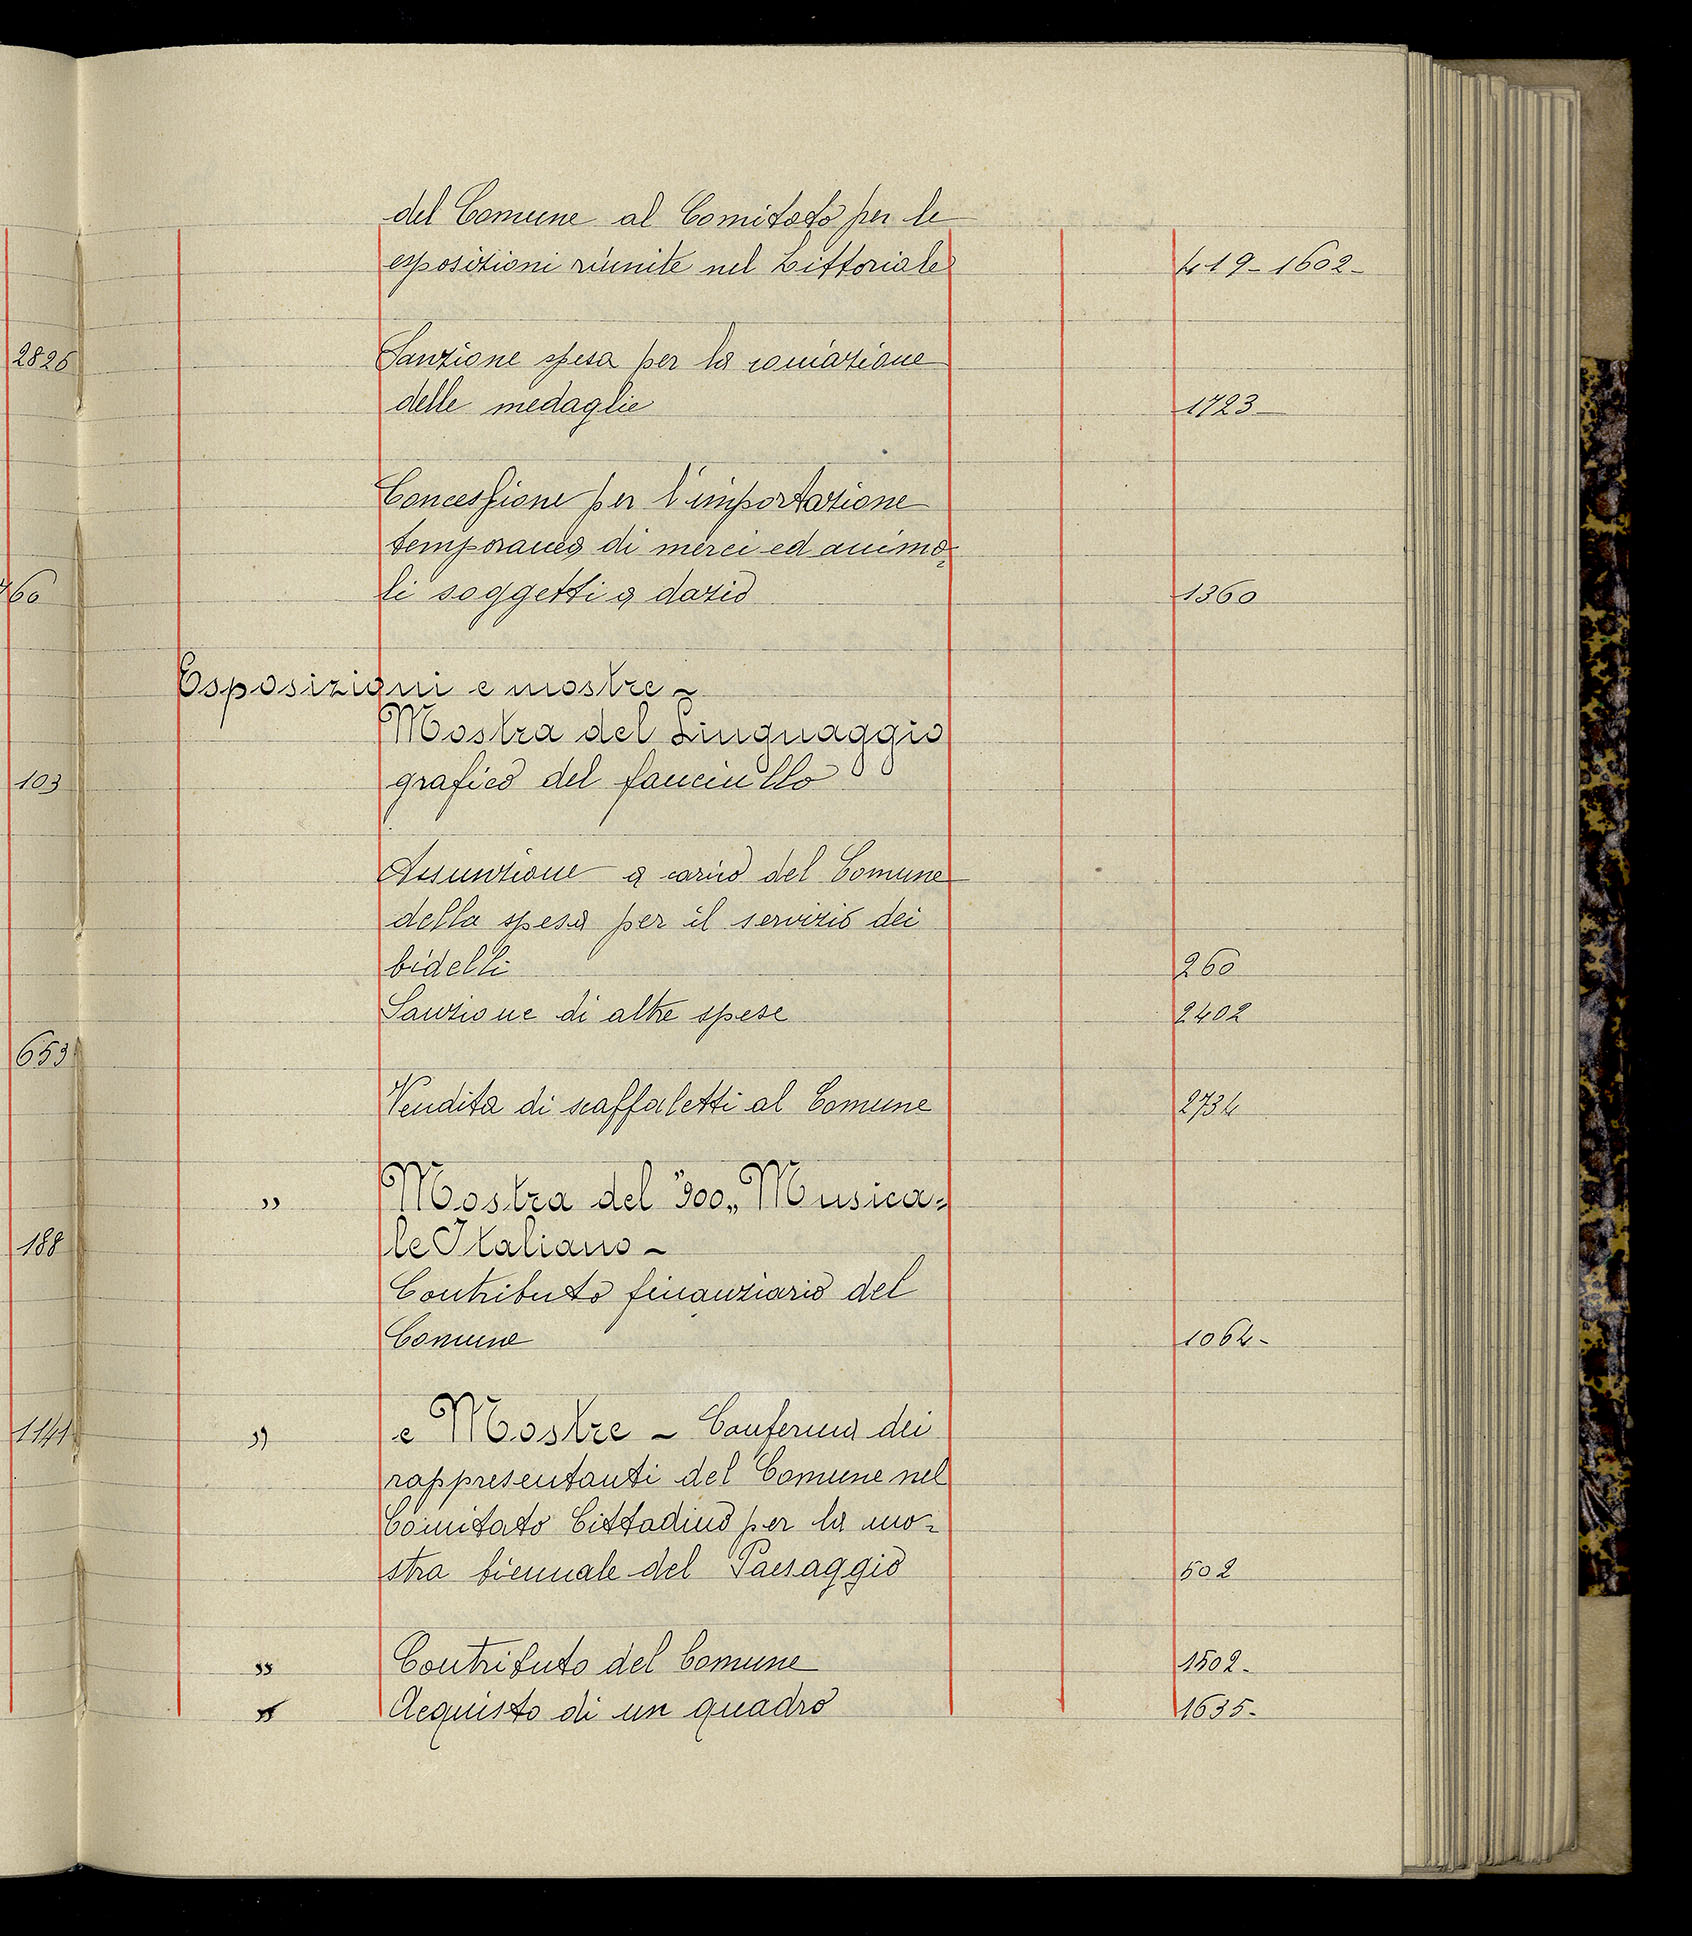 del Comune al Comitato per le
esposizioni riunite nel Littoriale 419-1602-
2826
Sanzione spesa per la coniazione
delle medaglie 1723-
Concessione per l'importazione
temporanea di merci ed anima=
li soggetti a dazio 1360
760
Esposizioni e mostre -
Mostra del Linguaggio
grafico del fanciullo
103
Assunzione a carico del Comune
della spesa per il servizio dei
bidelli 260
Sanzione di altre spese 2402
653
Vendita di scaffaletti al Comune 2734
" Mostra del "900" Musica=
le Italiano -
188
Contributo finanziario del
Comune 1064-
1141
" e Mostre - Conferma dei
rappresentanti del Comune nel
Comitato Cittadino per la mo=
stra biennale del Paesaggio 502
" Contributo del Comune 1502-
" Acquisto di un quadro 1635-